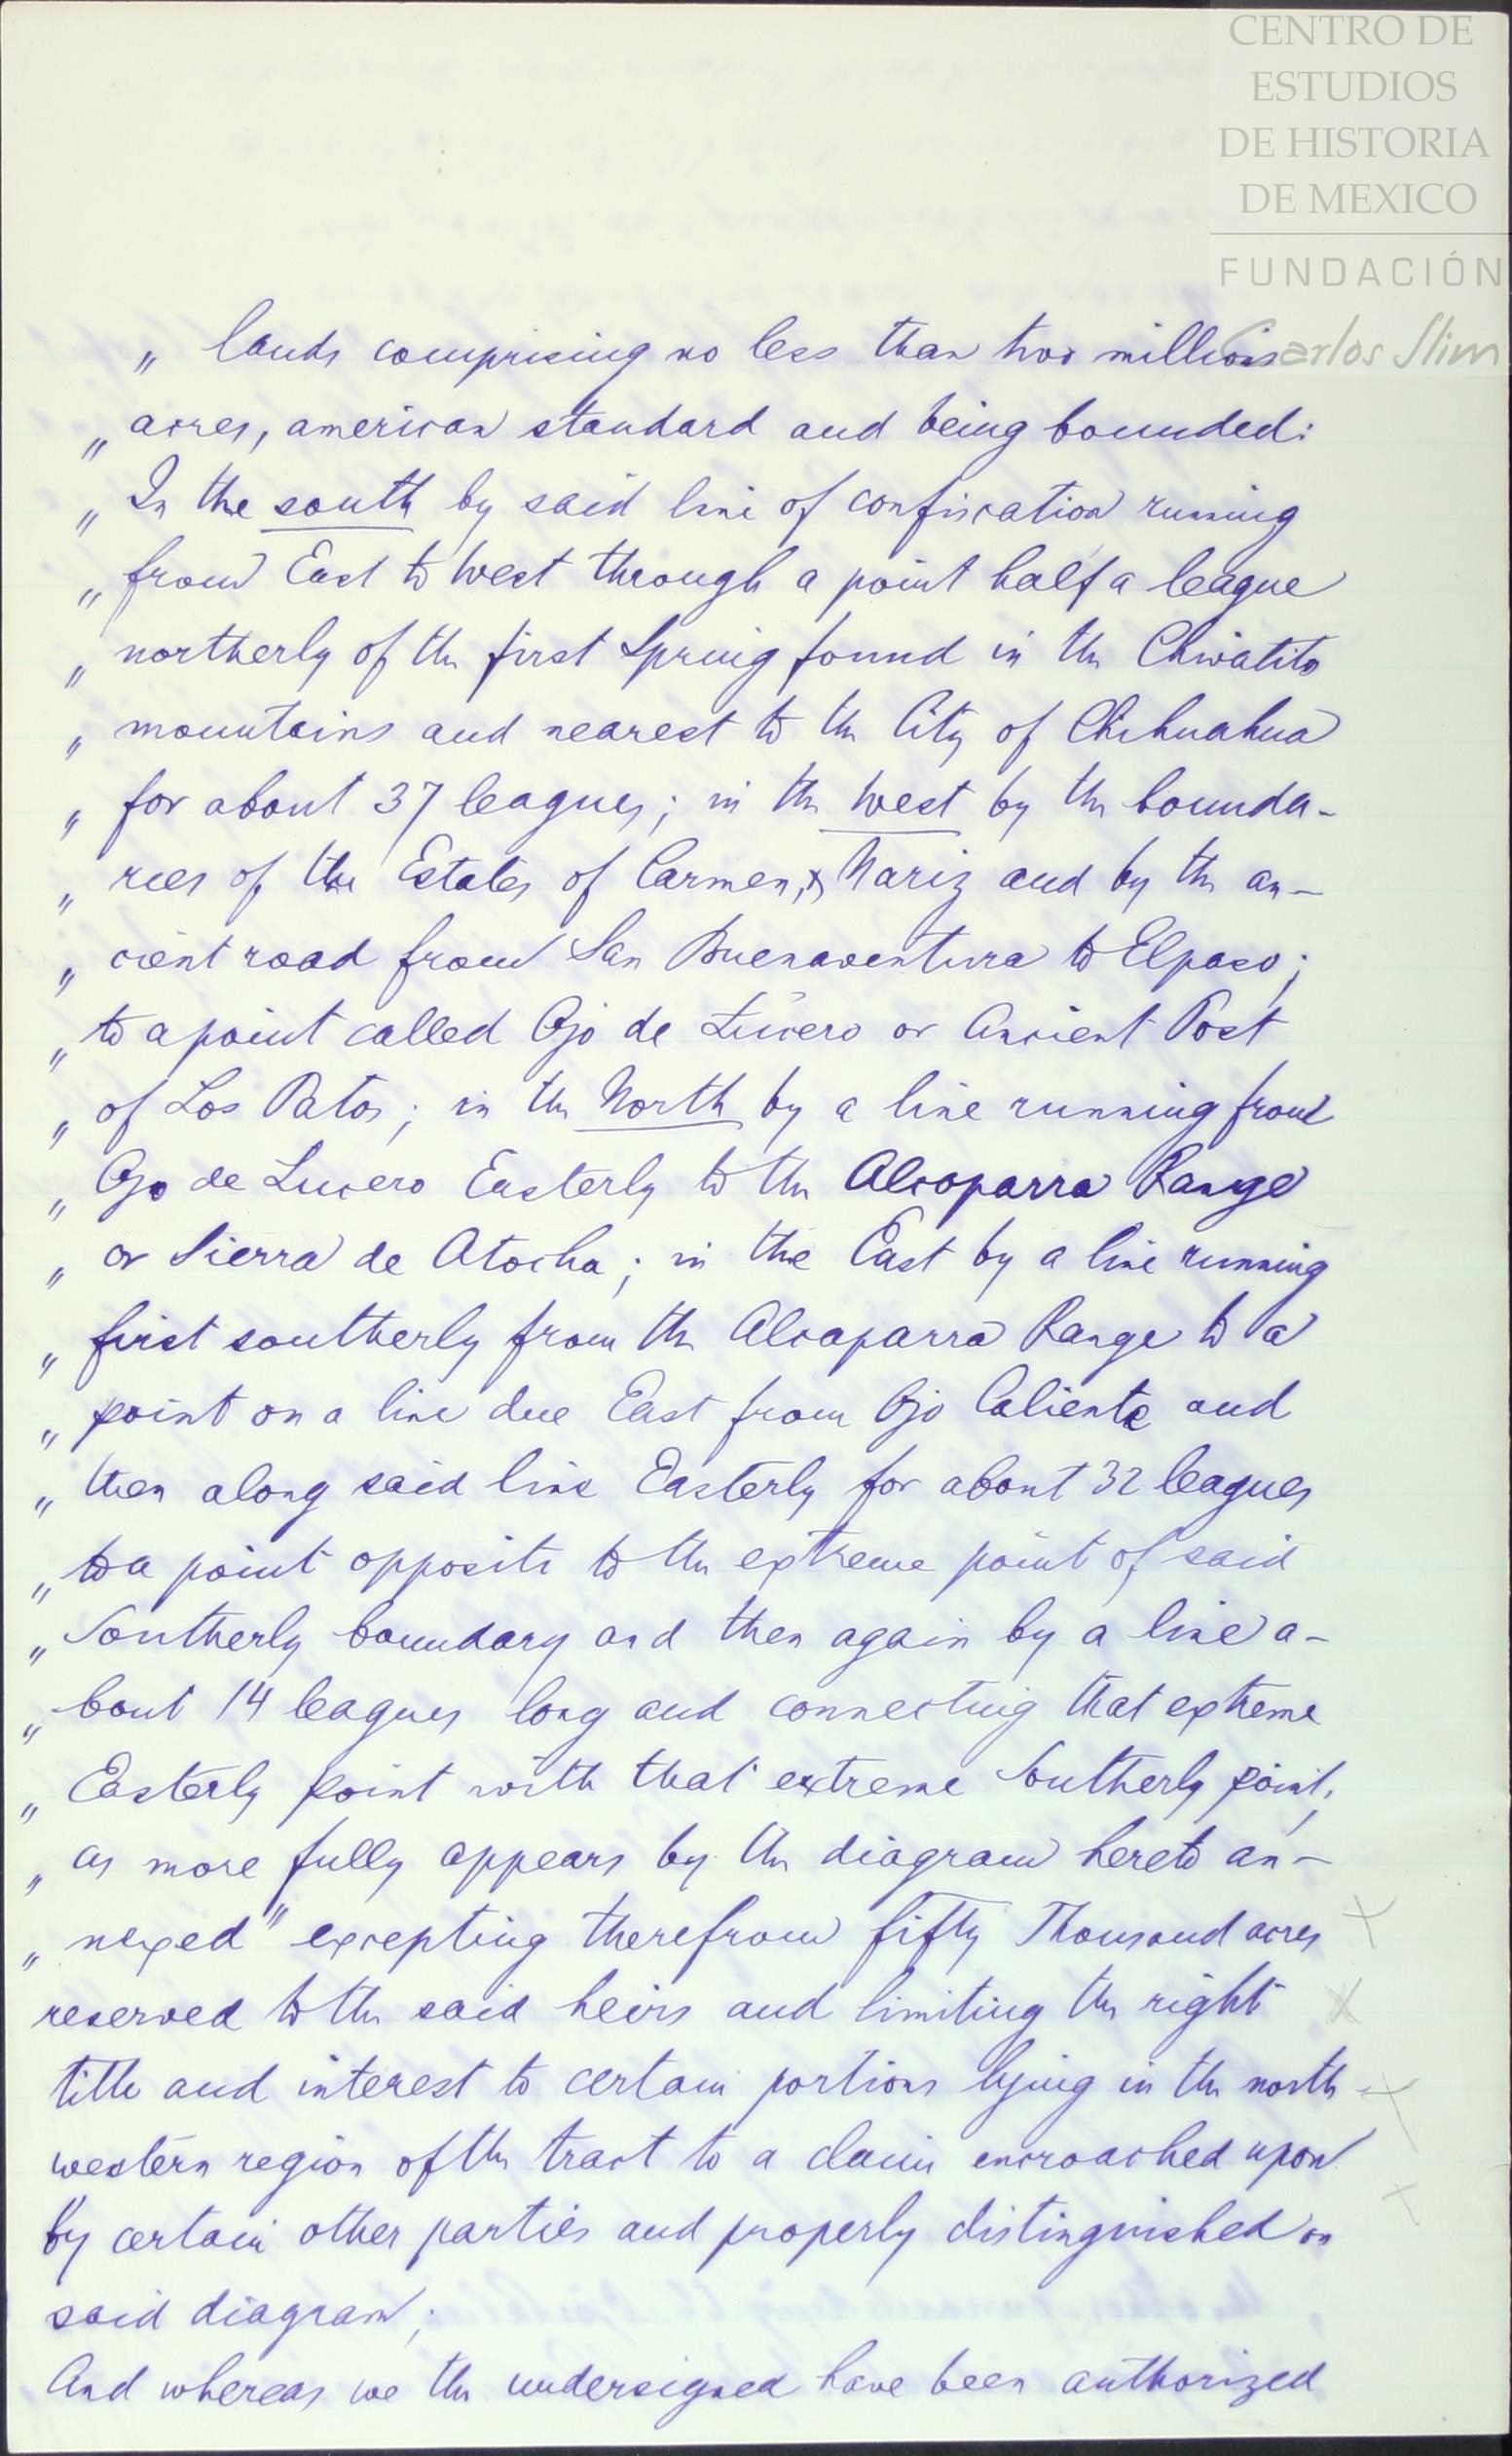 CENTRO DE
ESTUDIOS
DE HISTORIA
DE MEXICO
FUNDACIÓN
Carlos Slim
„ lands comprising no less than two millions
„ acres, american standard and being bounded:
„ In the south by said line of confiscation running
„ from East to West through a point half a league
„ northerly of the first Spring found in the Chivatito
„ mountains and nearest to the City of Chihuahua
„ for about 37 leagues; in the West by the bounda-
„ ries of the Estates of Carmen, & Nariz and by the an-
„ cient road from San Buenaventura to Elpaso;
„ to a point called Ojo de Lucero or Ancient Post
„ of Los Patos; in the North by a line running from
„ Ojo de Lucero Easterly to the Alcaparra Range
„ or Sierra de Atocha; in the East by a line running
„ first southerly from the Alcaparra Range to a
„ point on a line due East from Ojo Caliente and
„ then along said line Easterly for about 32 leagues
„ to a point opposite to the extreme point of said
„ Southerly boundary and then again by a line a-
„ bout 14 leagues long and connecting that extreme
„ Easterly point with that extreme Southerly point,
„ as more fully appears by the diagram hereto an-
„ nexed" excepting therefrom fifty Thousand acres
reserved to the said heirs and limiting the right
title and interest to certain portions lying in the north-
western region of the tract to a claim encroached upon
by certain other parties and properly distinguished on
said diagram;
And whereas we the undersigned have been authorized